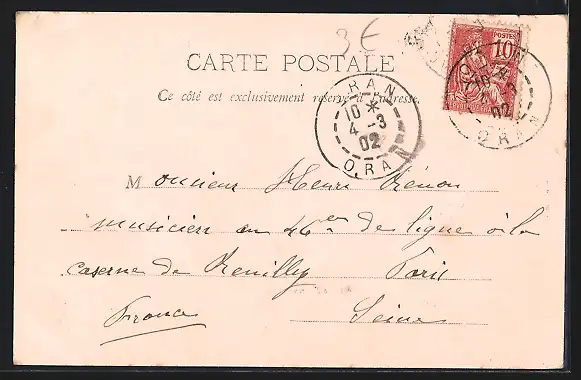 3 €
POSTES
10
CARTE POSTALE
Ce côté est exclusivement réservé à l'adresse.
ORAN
10 *
4 -3
02
ORAN
02
ORAN
Monsieur Henri
musicien au 46e de ligne à la
caserne de Reuilly Paris
France Seine